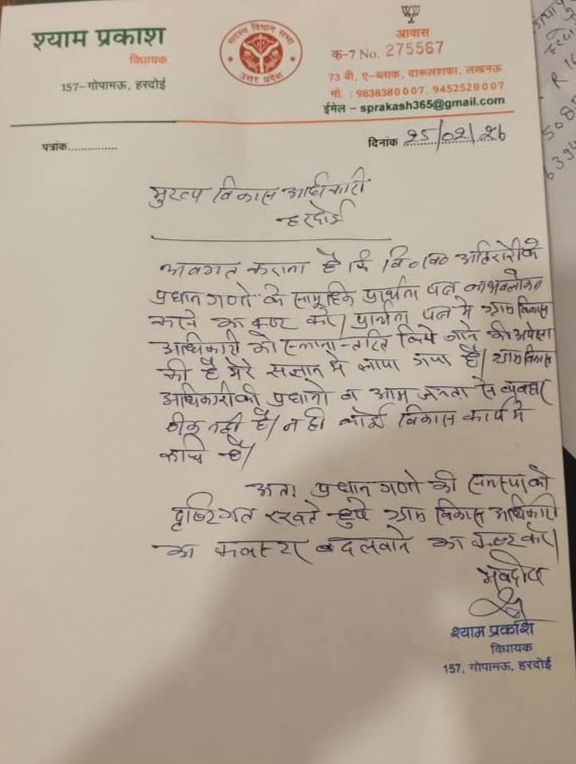 श्याम प्रकाश
विधायक
157-गोपामऊ, हरदोई
सदस्य विधान सभा
उत्तर प्रदेश
आवास
क-7 No. 275567
73 बी, ए-ब्लाक, दारूलशफा, लखनऊ
मो. : 9838380007, 9452520007
ईमेल – sprakash365@gmail.com
पत्रांक..............
दिनांक 25/02/26
मुख्य विकास अधिकारी
हरदोई
अवगत कराना है कि वि०ख० अहिरोरी के
प्रधान गणो के सामूहिक प्रार्थना पत्र का अवलोकन
करने का कष्ट करें। प्रार्थना पत्र मे ग्राम विकास
अधिकारी को स्थाना-तरित किये जाने की अपेक्षा
की है मेरे संज्ञान मे लाया गया है। ग्राम विकास
अधिकारी की प्रधानो व आम जनता से व्यवहार
ठीक नही है। न ही कोई विकास कार्य मे
रूचि है।
अतः प्रधान गणो की समस्या को
दृष्टिगत रखते हुये ग्राम विकास अधिकारी
का बदलवाने का कष्ट करें।
भवदीय
श्याम प्रकाश
विधायक
157, गोपामऊ, हरदोई